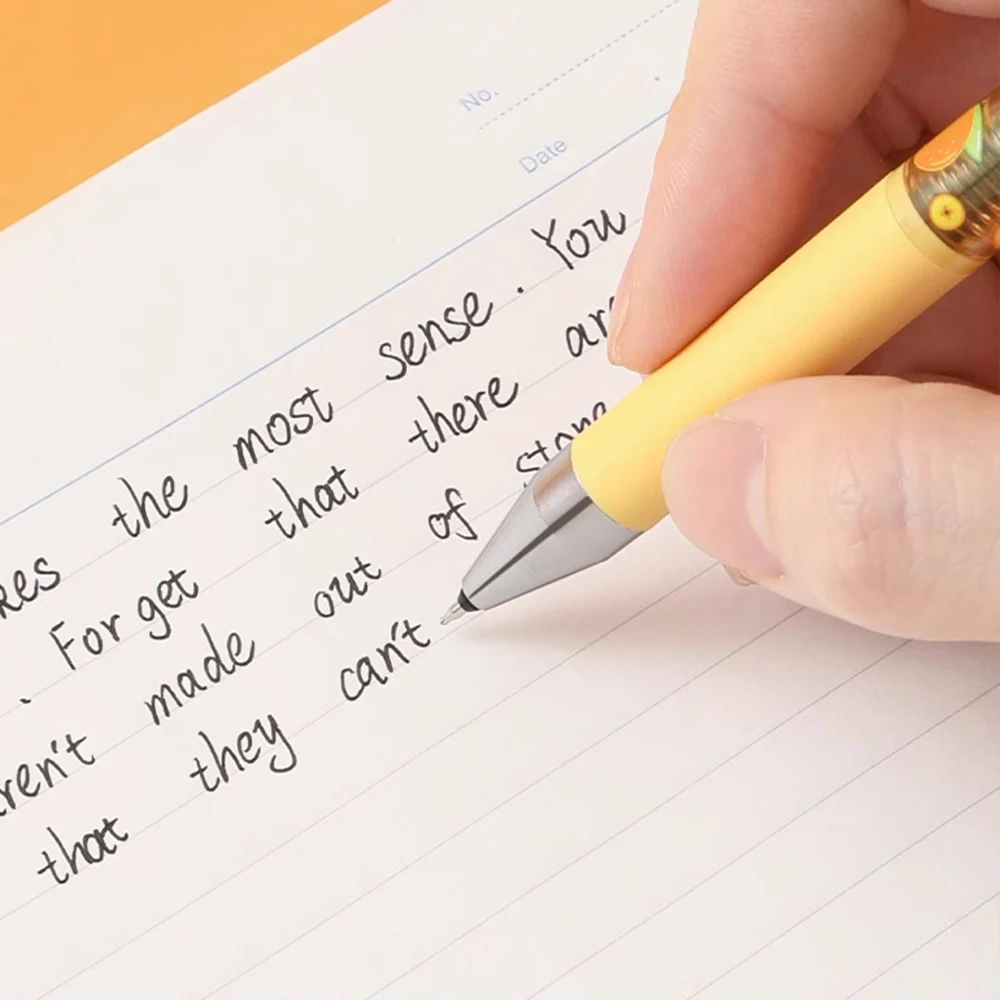 No.
Date
the most sense. You
. Forget that there
made out of
that they can't